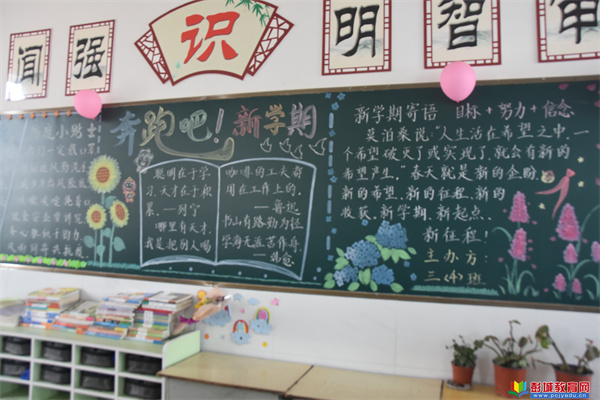 闻
强
识
明
智
审
奔跑吧!
新学期
聪明在于学
习,天才在于积
累。——列宁
哪里有天才,
我是把别人喝
咖啡的工夫都
用在工作上的。
——鲁迅
书山有路勤为径
学海无涯苦作舟
——韩愈
新学期寄语 目标+努力+信念
莫泊桑说:“人生活在希望之中,一
个希望破灭了或实现了,就会有新的
希望产生。”春天就是新的企盼、
新的希望、新的征程、新的
收获。新学期、新起点、
新征程!
主办方:
三〈4〉班
彭城教育网
www.pcjyedu.cn